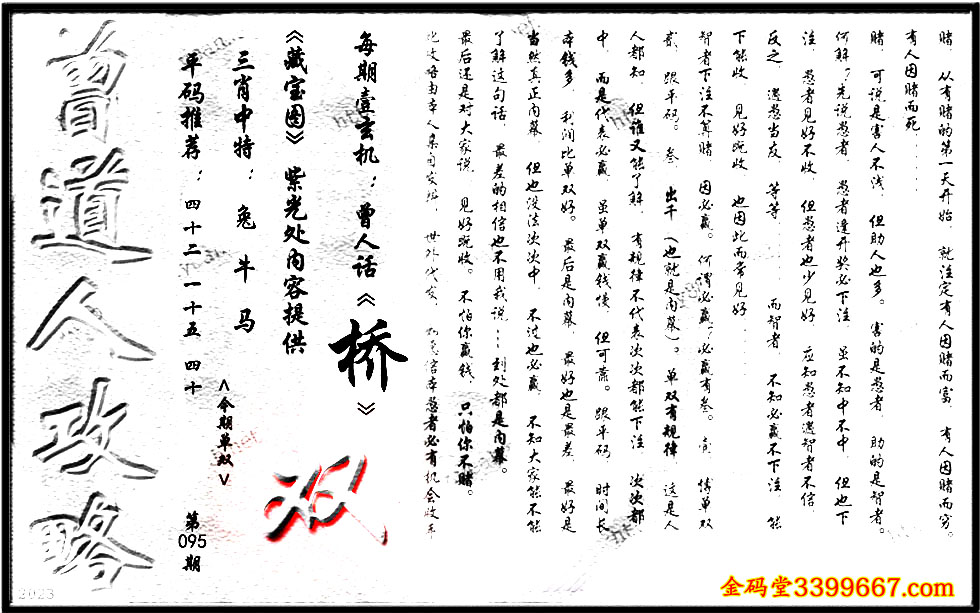 赌，从有赌的第一天开始，就注定有人因赌而富，有人因赌而穷。
有人因赌而死……
赌，可说是害人不浅，但助人也多。害的是愚者，助的是智者。
何解？先说愚者，愚者逢开奖必下注，虽不知中不中，但也下
注，愚者见好不收，但愚者也少见好，应知愚者遇智者不信，
反之，遇愚当友，等等……而智者，不知必赢不下注，能
下能收，见好就收，也因此而常见好……
智者下注不算赌，因必赢。何谓必赢？必赢有叁。壹，博单双
贰，跟平码。叁，出千（也就是内幕）。单双有规律，这是人
人都知，但谁又能了解，有规律不代表次次都能下注，次次都
中，而是代表必赢，虽单双赢钱慢，但可靠。跟平码，时间长
本钱多，利润比单双好。最后是内幕，最好也是最差，最好是
当然真正内幕，但也没法次次中，不过也必赢，不知大家能不
了解这句话，最差的相信也不用我说……到处都是内幕。
最后还是对大家说，见好就收。不怕你赢钱，只怕你不赌。
者必有机会收年
每期壹玄机：曾人话《桥》
《藏宝图》紫光处内容提供
三肖中特：兔 牛 马
平码推荐：四十二 一十五 四十
<今期单双>
双
第
095
期
曾道人攻略
2023
金码堂3399667.com